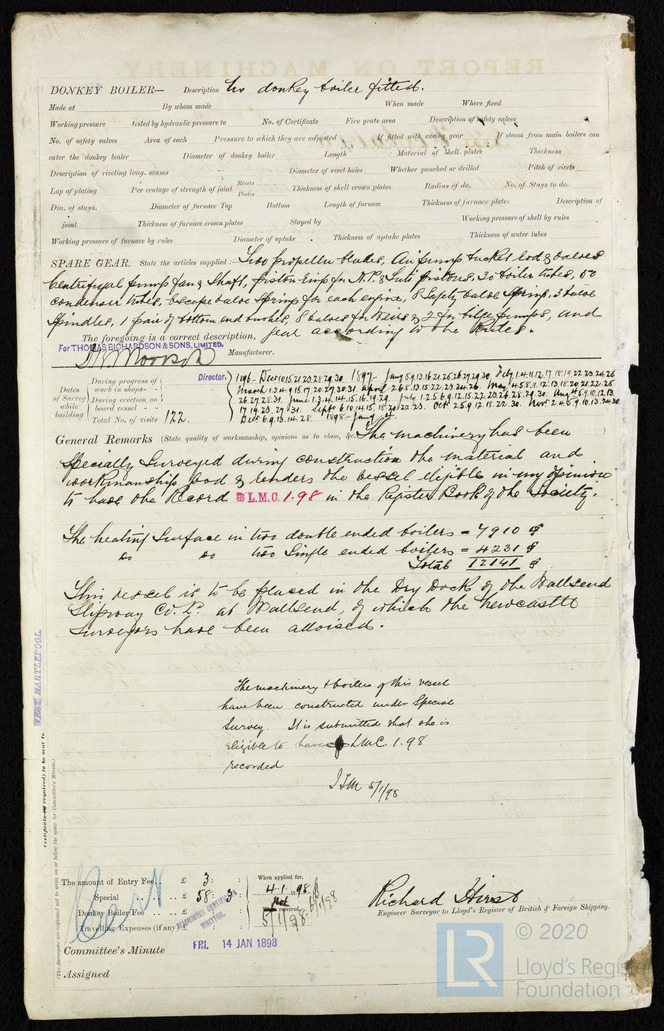 REPORT ON MACHINERY
DONKEY BOILER— Description No donkey boiler fitted.
Made at By whom made When made Where fixed
Working pressure tested by hydraulic pressure to No. of Certificate Fire grate area Description of safety valves
No. of safety valves Area of each Pressure to which they are adjusted If fitted with easing gear If steam from main boilers can
enter the donkey boiler Diameter of donkey boiler Length Material of shell plates Thickness
Description of riveting long. seams Diameter of rivet holes Whether punched or drilled Pitch of rivets
Lap of plating Per centage of strength of joint Rivets Plates Thickness of shell crown plates Radius of do. No. of Stays to do.
Dia. of stays. Diameter of furnace Top Bottom Length of furnace Thickness of furnace plates Description of
joint Thickness of furnace crown plates Stayed by Working pressure of shell by rules
Working pressure of furnace by rules Diameter of uptake Thickness of uptake plates Thickness of water tubes
SPARE GEAR. State the articles supplied:— Two propeller blades, Air pump bucket rod & valves
Centrifugal pump fan & Shaft, piston rings for H.P. & Int pistons. 30 boiler tubes, 50
condenser tubes, escape valve Spring for each engine, 8 Safety valve Springs, 3 valve
Spindles, 1 pair of bottom end bushes, 8 valves for & 2 for bilge pumps, and
gear according to the Rules.
The foregoing is a correct description,
For THOMAS RICHARDSON & SONS, LIMITED.
Manufacturer.
Director.
Dates of Survey while building
During progress of work in shops - -
During erection on board vessel - -
Total No. of visits 122
1896- Dec 10.15.21.23.28.29.30. 1897- Jany 5.9.13.16.21.25.26.27.29.30. Feby 1.4.11.12.17.18.19.22.23.24.26
March 1.3.4.9.15.17.20.27.30.31. April 2.6.8.13.15.22.23.24.26. May 4.5.8.11.12.13.18.20.21.22.25
26.27.28.31. June 1.3.4.14.15.16.19.29. July 1.2.5.6.9.12.15.22.23.26.28.29.30. Augst 5.9.10.12.13.
17.19.23.27.31. Sept 6.10.14.15.18.20.22.23. Oct 2.5.9.12.18.22.30. Nov 2.4.5.9.10.13.24.30
Dec 6.9.13.14.28. 1898- Jany 4
General Remarks (State quality of workmanship, opinions as to class, &c. The machinery has been
Specially Surveyed during construction the material and
workmanship good & renders the vessel eligible in my opinion
to have the Record L.M.C. 1.98 in the Register Book of the Society.
The heating Surface in two double ended boilers = 7910
do do two Single ended boilers = 4231
Total 12141
This vessel is to be placed in the Dry Dock of the Wallsend
Slipway Co. Ld. at Wallsend, of which the Newcastle
Surveyors have been advised.
The machinery & boilers of this vessel
have been constructed under Special
Survey. It is submitted that she is
eligible to have L.M.C. 1.98
recorded
5/1/98
WEST HARTLEPOOL
Certificate (if required) to be sent to
(The Surveyors are requested not to write on or below the space for Committee's Minute.)
The amount of Entry Fee.. £ 3 : :
Special .. £ 58 : 3 :
Donkey Boiler Fee .. £ : :
Travelling Expenses (if any) £ : :
When applied for,
4.1.1898
received,
5/1/98
MACHINERY CERTIFICATE WRITTEN.
Richard Hirst
Engineer Surveyor to Lloyd's Register of British & Foreign Shipping.
Committee's Minute
FRI. 14 JAN 1898
Assigned
LR
© 2020
Lloyd's Register
Foundation